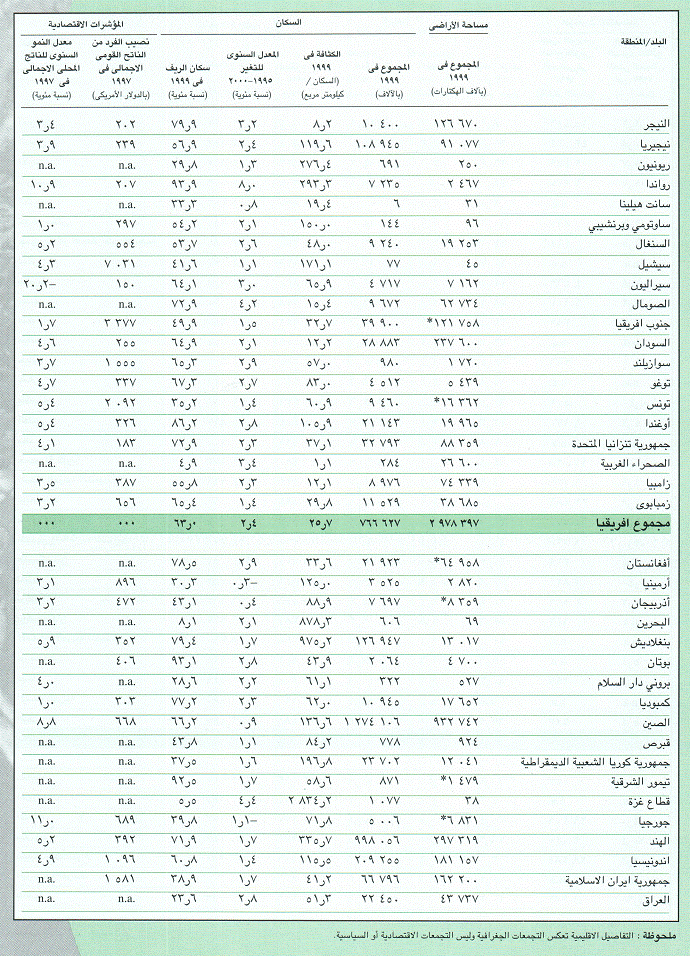 البلد/المنطقة
مساحة الأراضى
السكان
المؤشرات الاقتصادية
المجموع فى ١٩٩٩ (بالاف الهكتارات)
المجموع فى ١٩٩٩ (بالآلاف)
الكثافة فى ١٩٩٩ (السكان / كيلومتر مربع)
المعدل السنوى للتغير ١٩٩٥-٢٠٠٠ (نسبة مئوية)
سكان الريف فى ١٩٩٩ (نسبة مئوية)
نصيب الفرد من الناتج القومى الاجمالى فى ١٩٩٧ (بالدولار الأمريكى)
معدل النمو السنوى للناتج المحلى الاجمالى فى ١٩٩٧ (نسبة مئوية)
النيجر ١٢٦ ٦٧٠ ١٠ ٤٠٠ ٨ر٢ ٣ر٢ ٧٩ر٩ ٢٠٢ ٣ر٤
نيجيريا ٩١ ٠٧٧ ١٠٨ ٩٤٥ ١١٩ر٦ ٢ر٤ ٥٦ر٩ ٢٣٩ ٣ر٩
ريونيون ٢٥٠ ٦٩١ ٢٧٦ر٤ ١ر٣ ٢٩ر٨ n.a. n.a.
رواندا ٢ ٤٦٧ ٧ ٢٣٥ ٢٩٣ر٣ ٨ر٠ ٩٣ر٩ ٢٠٧ ١٠ر٩
سانت هيلينا ٣١ ٦ ١٩ر٤ ٠ر٨ ٣٣ر٣ n.a. n.a.
ساوتومي وبرنشيبي ٩٦ ١٤٤ ١٥٠ر٠ ٢ر١ ٥٤ر٢ ٢٩٧ ١ر٠
السنغال ١٩ ٢٥٣ ٩ ٢٤٠ ٤٨ر٠ ٢ر٦ ٥٣ر٧ ٥٥٤ ٥ر٢
سيشيل ٤٥ ٧٧ ١٧١ر١ ١ر١ ٤١ر٦ ٧ ٠٣١ ٤ر٣
سيراليون ٧ ١٦٢ ٤ ٧١٧ ٦٥ر٩ ٣ر٠ ٦٤ر١ ١٥٠ -٢٠ر٢
الصومال ٦٢ ٧٣٤ ٩ ٦٧٢ ١٥ر٤ ٤ر٢ ٧٢ر٩ n.a. n.a.
جنوب افريقيا ١٢١ ٧٥٨* ٣٩ ٩٠٠ ٣٢ر٧ ١ر٥ ٤٩ر٩ ٣ ٣٧٧ ١ر٧
السودان ٢٣٧ ٦٠٠ ٢٨ ٨٨٣ ١٢ر٢ ٢ر١ ٦٤ر٩ ٢٥٥ ٤ر٦
سوازيلند ١ ٧٢٠ ٩٨٠ ٥٧ر٠ ٢ر٩ ٦٥ر٣ ١ ٥٥٥ ٣ر٧
توغو ٥ ٤٣٩ ٤ ٥١٢ ٨٣ر٠ ٢ر٧ ٦٧ر٣ ٣٣٧ ٤ر٧
تونس ١٦ ٣٦٢* ٩ ٤٦٠ ٦٠ر٩ ١ر٤ ٣٥ر٢ ٢ ٠٩٢ ٥ر٤
أوغندا ١٩ ٩٦٥ ٢١ ١٤٣ ١٠٥ر٩ ٢ر٨ ٨٦ر٢ ٣٢٦ ٥ر٤
جمهورية تنزانيا المتحدة ٨٨ ٣٥٩ ٣٢ ٧٩٣ ٣٧ر١ ٢ر٣ ٧٢ر٩ ١٨٣ ٤ر١
الصحراء الغربية ٢٦ ٦٠٠ ٢٨٤ ١ر١ ٣ر٤ ٤ر٩ n.a. n.a.
زامبيا ٧٤ ٣٣٩ ٨ ٩٧٦ ١٢ر١ ٢ر٣ ٥٥ر٨ ٣٨٧ ٣ر٥
زمبابوى ٣٨ ٦٨٥ ١١ ٥٢٩ ٢٩ر٨ ١ر٤ ٦٥ر٤ ٦٥٦ ٣ر٢
مجموع افريقيا ٢ ٩٧٨ ٣٩٧ ٧٦٦ ٦٢٧ ٢٥ر٧ ٢ر٤ ٦٣ر٠ ... ...
أفغانستان ٦٤ ٩٥٨* ٢١ ٩٢٣ ٣٣ر٦ ٢ر٩ ٧٨ر٥ n.a. n.a.
أرمينيا ٢ ٨٢٠ ٣ ٥٢٥ ١٢٥ر٠ -٠ر٣ ٣٠ر٣ ٨٩٦ ٣ر١
أذربيجان ٨ ٣٥٩* ٧ ٦٩٧ ٨٨ر٩ ٠ر٤ ٤٣ر١ ٤٧٢ ٣ر٢
البحرين ٦٩ ٦٠٦ ٨٧٨ر٣ ٢ر١ ٨ر١ n.a. n.a.
بنغلاديش ١٣ ٠١٧ ١٢٦ ٩٤٧ ٩٧٥ر٢ ١ر٧ ٧٩ر٤ ٣٥٢ ٥ر٩
بوتان ٤ ٧٠٠ ٢ ٠٦٤ ٤٣ر٩ ٢ر٨ ٩٣ر١ ٤٠٦ n.a.
بروني دار السلام ٥٢٧ ٣٢٢ ٦١ر١ ٢ر٢ ٢٨ر٦ n.a. ٤ر٠
كمبوديا ١٧ ٦٥٢ ١٠ ٩٤٥ ٦٢ر٠ ٢ر٣ ٧٧ر٢ ٣٠٣ ١ر٠
الصين ٩٣٢ ٧٤٢ ١ ٢٧٤ ١٠٦ ١٣٦ر٦ ٠ر٩ ٦٦ر٢ ٦٦٨ ٨ر٨
قبرص ٩٢٤ ٧٧٨ ٨٤ر٢ ١ر١ ٤٣ر٨ n.a. n.a.
جمهورية كوريا الشعبية الديمقراطية ١٢ ٠٤١ ٢٣ ٧٠٢ ١٩٦ر٨ ١ر٦ ٣٧ر٥ n.a. n.a.
تيمور الشرقية ١ ٤٧٩* ٨٧١ ٥٨ر٦ ١ر٧ ٩٢ر٥ n.a. n.a.
قطاع غزة ٣٨ ١ ٠٧٧ ٢ ٨٣٤ر٢ ٤ر٤ ٥ر٥ n.a. n.a.
جورجيا ٦ ٨٣١* ٥ ٠٠٦ ٧١ر٨ -١ر١ ٣٩ر٨ ٦٨٩ ١١ر٠
الهند ٢٩٧ ٣١٩ ٩٩٨ ٠٥٦ ٣٣٥ر٧ ١ر٧ ٧١ر٩ ٣٩٢ ٥ر٢
اندونيسيا ١٨١ ١٥٧ ٢٠٩ ٢٥٥ ١١٥ر٥ ١ر٤ ٦٠ر٨ ١ ٠٩٦ ٤ر٩
جمهورية ايران الاسلامية ١٦٢ ٢٠٠ ٦٦ ٧٩٦ ٤١ر٢ ١ر٧ ٣٨ر٩ ١ ٥٨١ n.a.
العراق ٤٣ ٧٣٧ ٢٢ ٤٥٠ ٥١ر٣ ٢ر٨ ٢٣ر٦ n.a. n.a.
ملحوظة : التفاصيل الاقليمية تعكس التجمعات الجغرافية وليس التجمعات الاقتصادية أو السياسية.